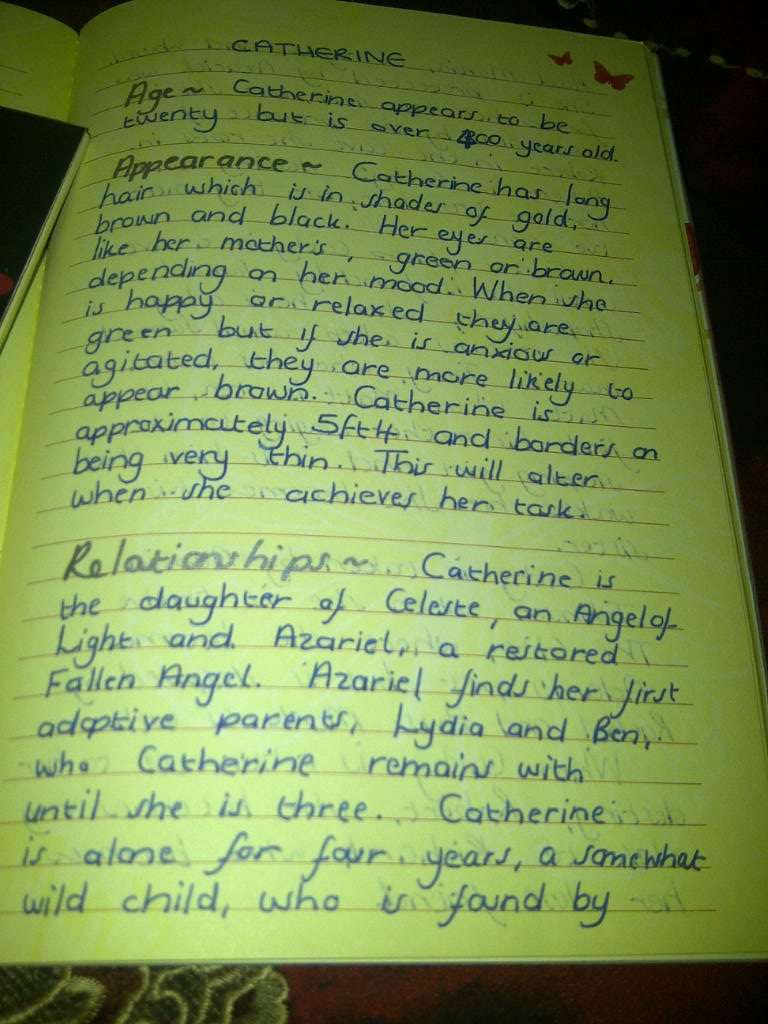 CATHERINE
Age ~ Catherine appears to be
twenty but is over 400 years old.
Appearance ~ Catherine has long
hair which is in shades of gold,
brown and black. Her eyes are
like her mother's, green or brown,
depending on her mood. When she
is happy or relaxed they are
green but if she is anxious or
agitated, they are more likely to
appear brown. Catherine is
approximately 5ft4 and borders on
being very thin. This will alter
when she achieves her task.
Relationships ~ Catherine is
the daughter of Celeste, an Angel of
Light and Azariel, a restored
Fallen Angel. Azariel finds her first
adoptive parents, Lydia and Ben,
who Catherine remains with
until she is three. Catherine
is alone for four years, a somewhat
wild child, who is found by